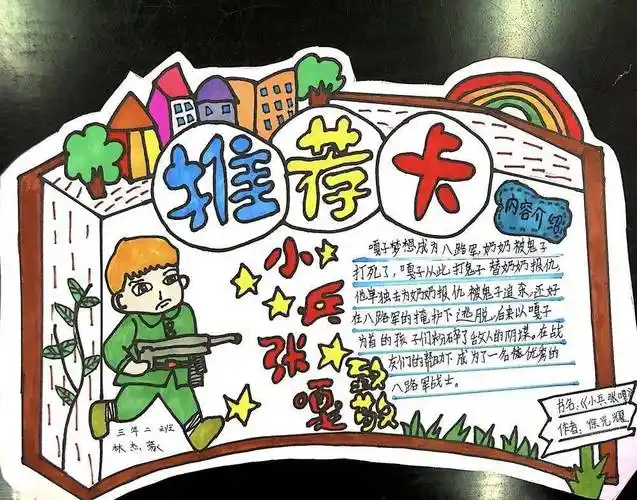 推荐卡
小兵张嘎
内容介绍
嘎子梦想成为八路军,奶奶被鬼子
打死了,嘎子从此打鬼子替奶奶报仇,
他单独去为奶奶报仇被鬼子追杀,还好
在八路军的掩护下逃脱,后来以嘎子
为首的孩子们粉碎了敌人的阴谋。在战
友们的帮助下成为了一名优秀的
八路军战士。
书名:《小兵张嘎》
作者:徐光耀
三年二班
林杰